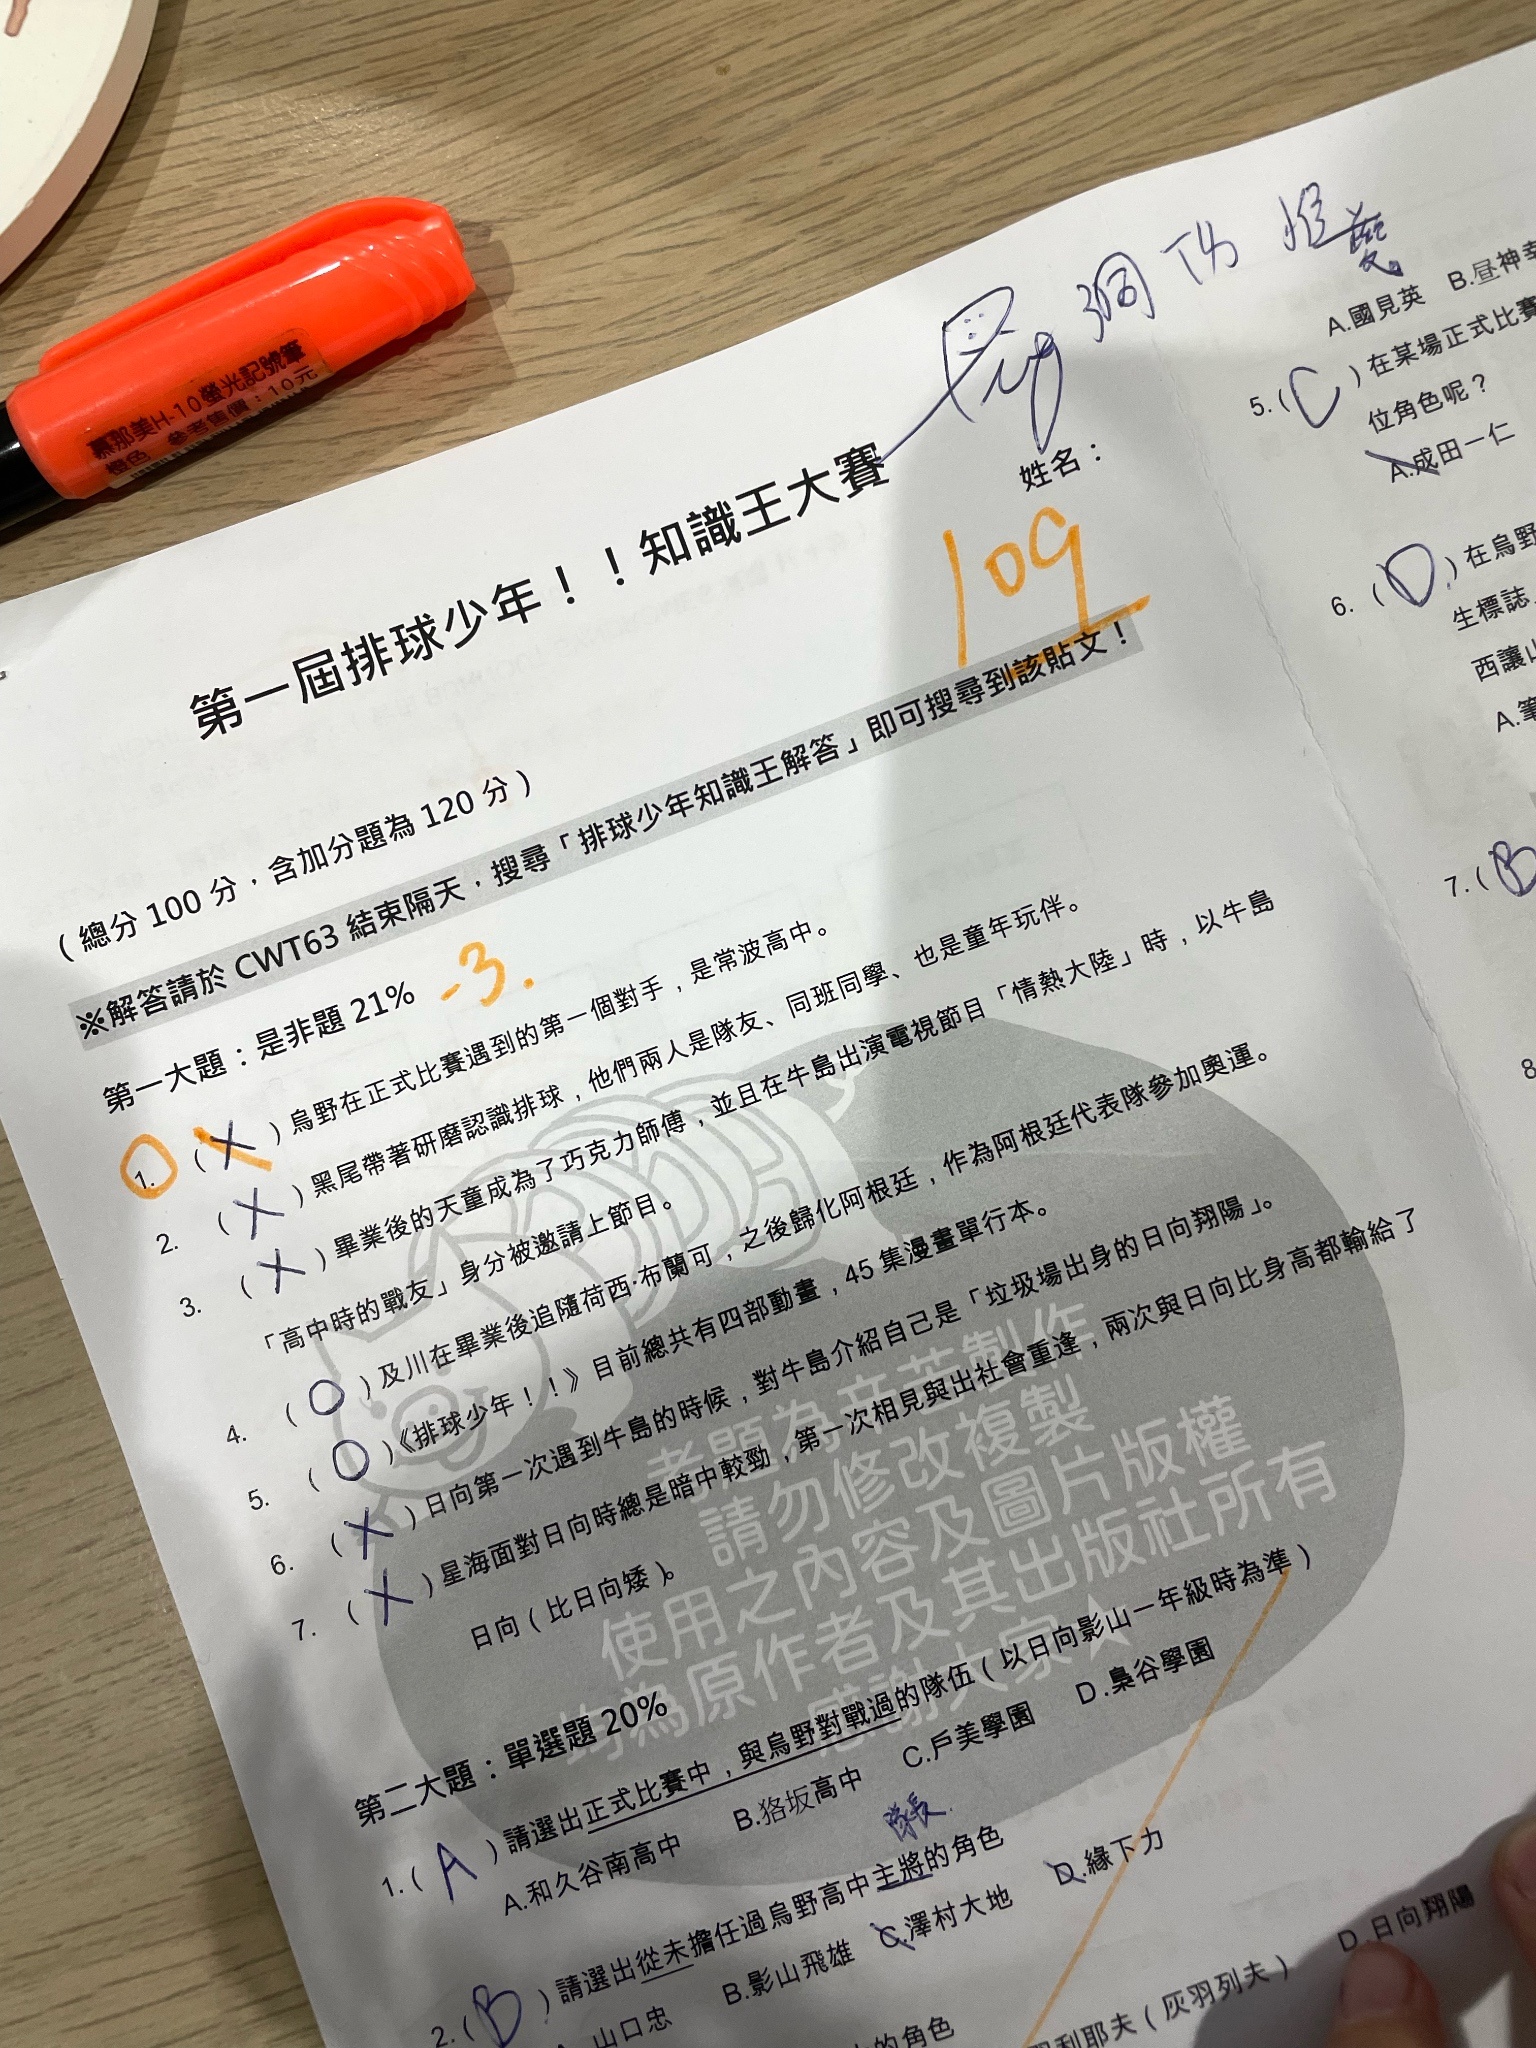 慕那美H-10螢光記號筆
參考售價：10元
橙色
第一屆排球少年！！知識王大賽
姓名：
109
（總分 100 分，含加分題為 120 分）
※解答請於 CWT63 結束隔天，搜尋「排球少年知識王解答」即可搜尋到該貼文！
第一大題：是非題 21% -3.
1. ( X ) 烏野在正式比賽遇到的第一個對手，是常波高中。
2. ( X ) 黑尾帶著研磨認識排球，他們兩人是隊友、同班同學、也是童年玩伴。
3. ( X ) 畢業後的天童成為了巧克力師傅，並且在牛島出演電視節目「情熱大陸」時，以牛島
「高中時的戰友」身分被邀請上節目。
4. ( O ) 及川在畢業後追隨荷西·布蘭可，之後歸化阿根廷，作為阿根廷代表隊參加奧運。
5. ( O )《排球少年！！》目前總共有四部動畫，45 集漫畫單行本。
6. ( X ) 日向第一次遇到牛島的時候，對牛島介紹自己是「垃圾場出身的日向翔陽」。
7. ( X ) 星海面對日向時總是暗中較勁，第一次相見與出社會重逢，兩次與日向比身高都輸給了
日向（比日向矮）。
考題為辛苦製作
請勿修改複製
使用之內容及圖片版權
均為原作者及其出版社所有
感謝大家★
第二大題：單選題 20%
1. ( A ) 請選出正式比賽中，與烏野對戰過的隊伍（以日向影山一年級時為準）
A.和久谷南高中 B.狢坂高中 C.戶美學園 D.梟谷學園
隊長
2. ( B ) 請選出從未擔任過烏野高中主將的角色
山口忠 B.影山飛雄 C.澤村大地 D.緣下力
的角色
利耶夫（灰羽列夫） D.日向翔陽
A.國見英 B.昼神幸
5. ( C ) 在某場正式比賽
位角色呢？
A.成田一仁
6. ( D ) 在烏野
生標誌
西讓山
A.筆
7. ( B
8